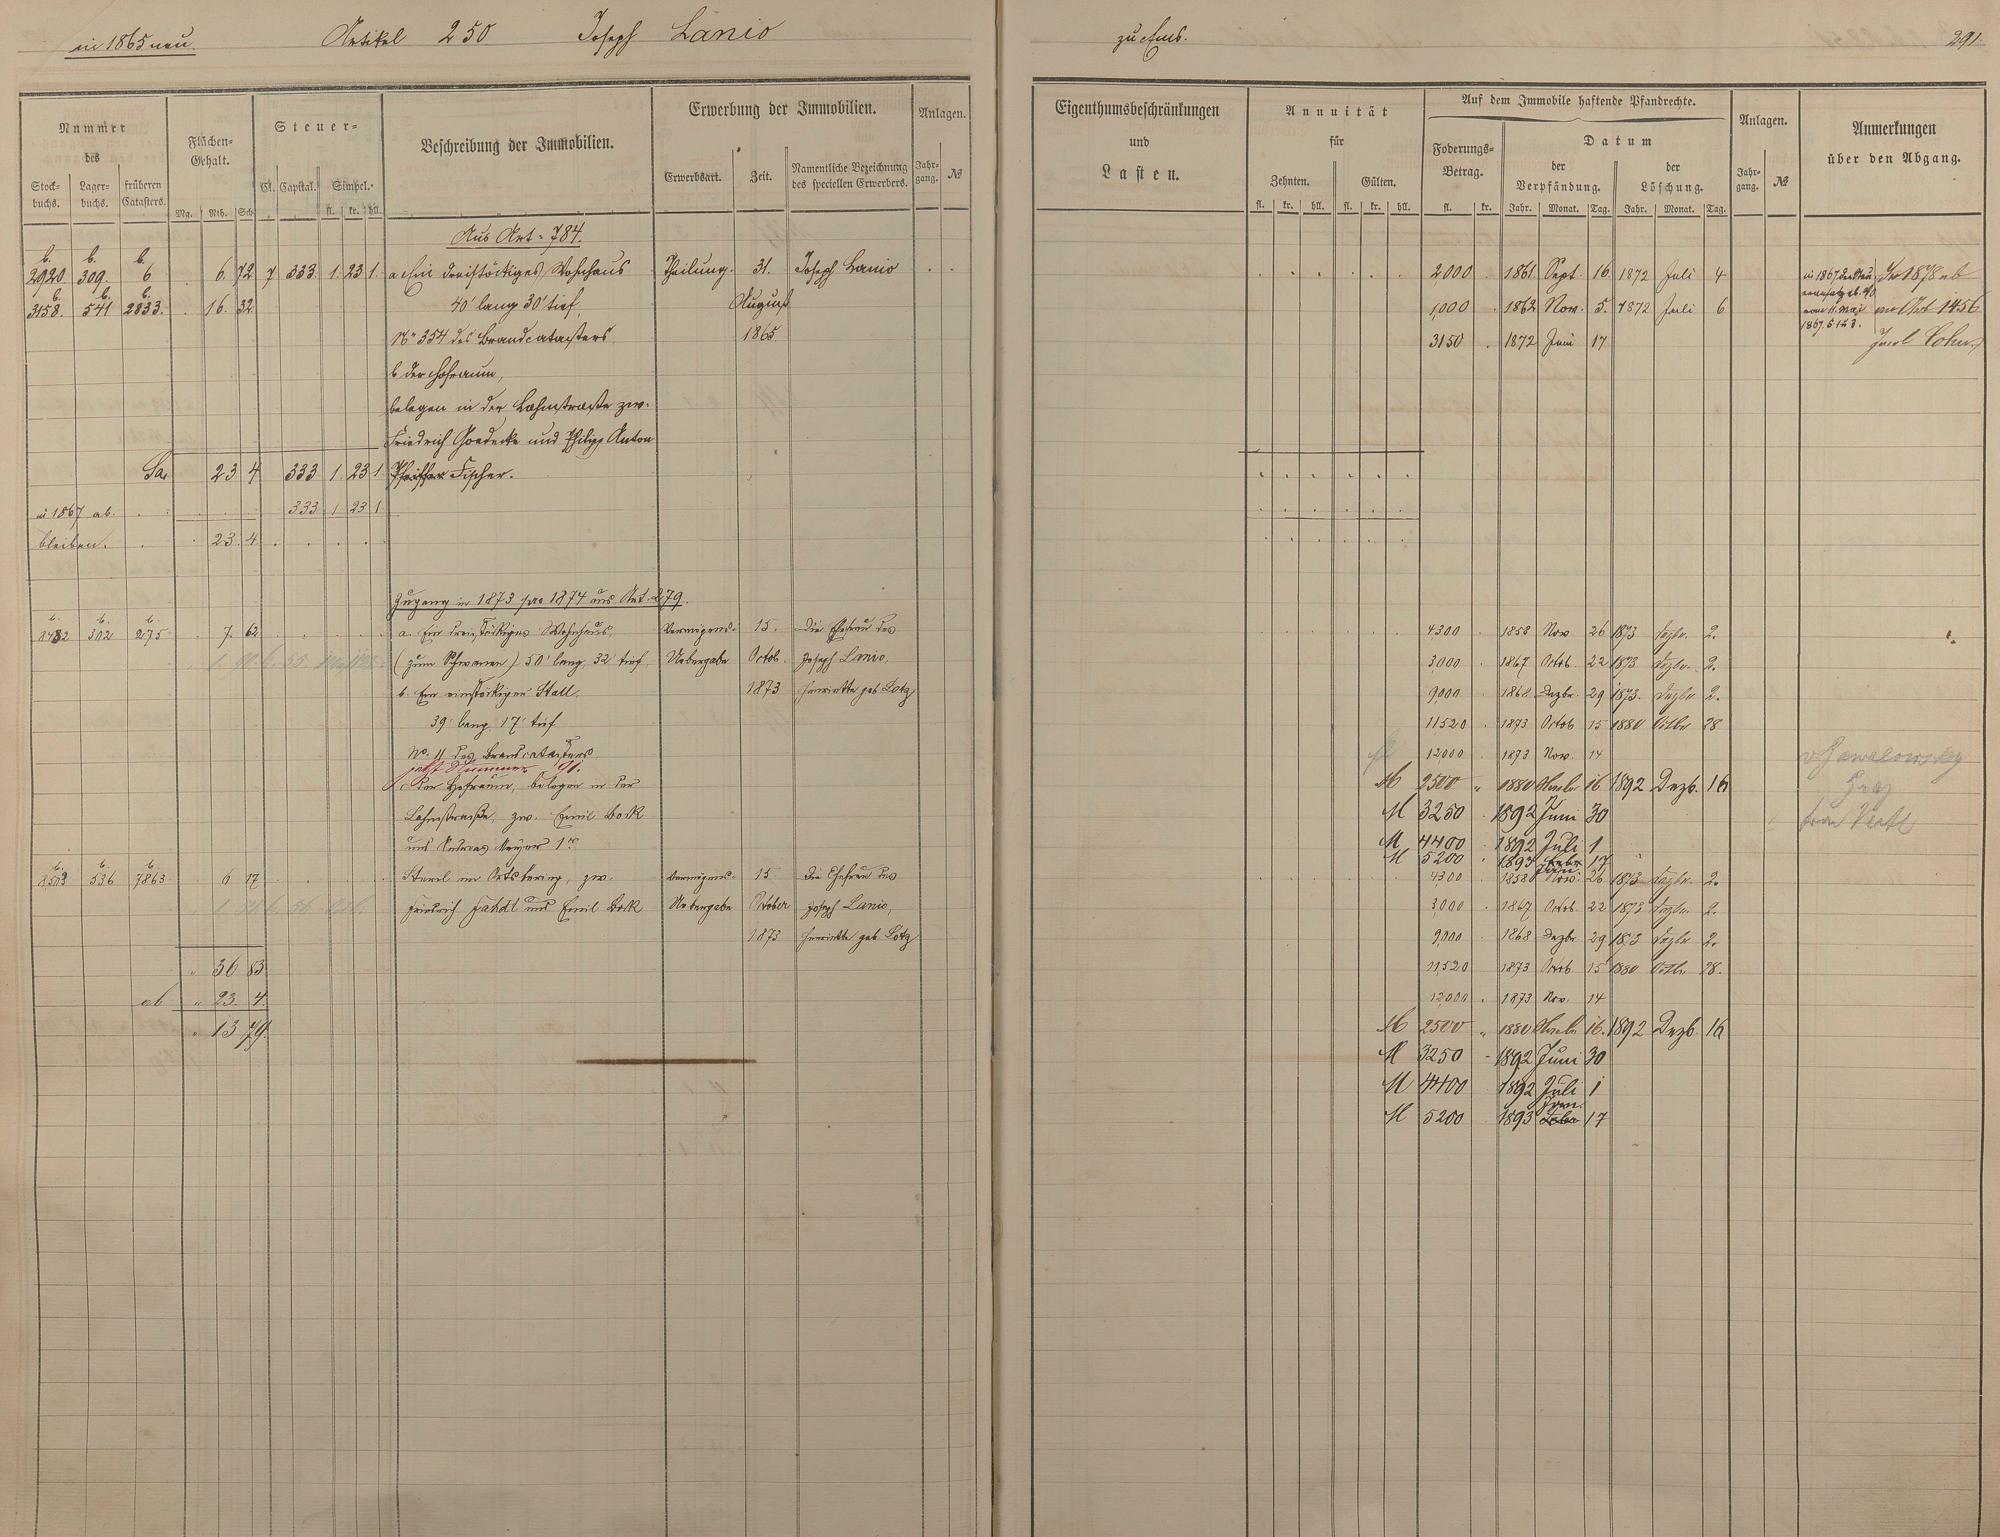 in 1865 neu. Artikel 250 Joseph Lanio
Nummer des
Stock-buchs. Lager-buchs. früheren Catasters.
Flächen-Gehalt.
Mg. Rth. Sch.
Steuer-
Cl. Capital. Simpel.
fl. kr. hll.
Beschreibung der Immobilien.
Erwerbung der Immobilien.
Erwerbsart. Zeit. Namentliche Bezeichnung des speciellen Erwerbers.
Anlagen.
Jahr-gang. №
Aus Art. 784.
b. b. b.
2920 309. 6 6 72 7 333 1 23 1 a Ein dreistöckiges Wohnhaus Theilung. 31. Joseph Lanio
b. b. b.
3158. 541 2833. 16. 32 40' lang 30' tief, August
No 354 des Brandcatasters 1865
b der Hofraum,
belegen in der Lahnstraße zw.
Friedrich Goedecke und Philipp Anton
Sa. 23 4 333 1 23 1 Pfeiffer Fischer.
in 1867 ab. 333 1 23 1
bleiben. 23. 4
Zugang in 1873 pro 1874 aus Art. 279.
b. b. b.
3482 302 275 7. 62 a. Ein dreistöckiges Wohnhaus, Vermögens- 15. Die Ehefrau des
(zum Schwanen) 50' lang, 32' tief, Uebergabe Octob. Joseph Lanio,
b. Ein einstöckiger Stall, 1873 Henriette geb. Lotz
39' lang 17' tief
No. 11 des Brandcatasters
jetzt Nummer 91.
c. Der Hofraum, belegen in der
Lahnstraße, zw. Emil Bock
und Andreas Meyer 1r
b. b. b.
3503 536 7863 6 17 im Ortsbering, zw. Vermögens- 15 Die Ehefrau des
Friedrich und Emil Bock Uebergabe October Joseph Lanio,
1873 Henriette geb. Lotz
" 36 83
ab " 23. 4.
" 13 79.
zu Ems. 291.
Eigenthumsbeschränkungen
und
Lasten.
Annuität
für
Zehnten. Gülten.
fl. kr. hll. fl. kr. hll.
Auf dem Immobile haftende Pfandrechte.
Foderungs-Betrag.
fl. kr.
Datum
der Verpfändung. der Löschung.
Jahr. Monat. Tag. Jahr. Monat. Tag.
Anlagen.
Jahr-gang. №
Anmerkungen
über den Abgang.
2,000 1861 Sept. 16 1872 Juli 4 In 1878 ab
1,000 1862 Nov. 5. 1872 Juli 6 an Art 1456
3150 1872 Juni 17
4,300 1858 Nov 26 1873 Dezbr. 2.
3,000 1867 Octob. 22 1873 Dezbr. 2.
9,000 1868 Dezbr. 29 1873. Dezbr 2.
11520 1873 Octob 15 1880 Octbr 28
12000 1873 Nov. 14
M 2500 " 1880 Novbr 16 1892 Dezb. 16
M 3250 1892 Juni 30
M 4400 1892 Juli 1
M 5200 1893 Febr Jan. 17
4,300 1858 Nov. 26 1873 Dezbr. 2.
3,000 1867 Octob. 22 1873 Dezbr. 2.
9,000 1868 Dezbr. 29 1873 Dezbr 2.
11,520 1873 Octob. 15 1880 Octbr 28.
12,000 1873 Nov. 14
M 2500 " 1880 Novbr 16. 1892 Dezb. 16
M 3250 - 1892 Juni 30
M 4400 1892 Juli 1
M 5200 1893 Jan. Febr 17